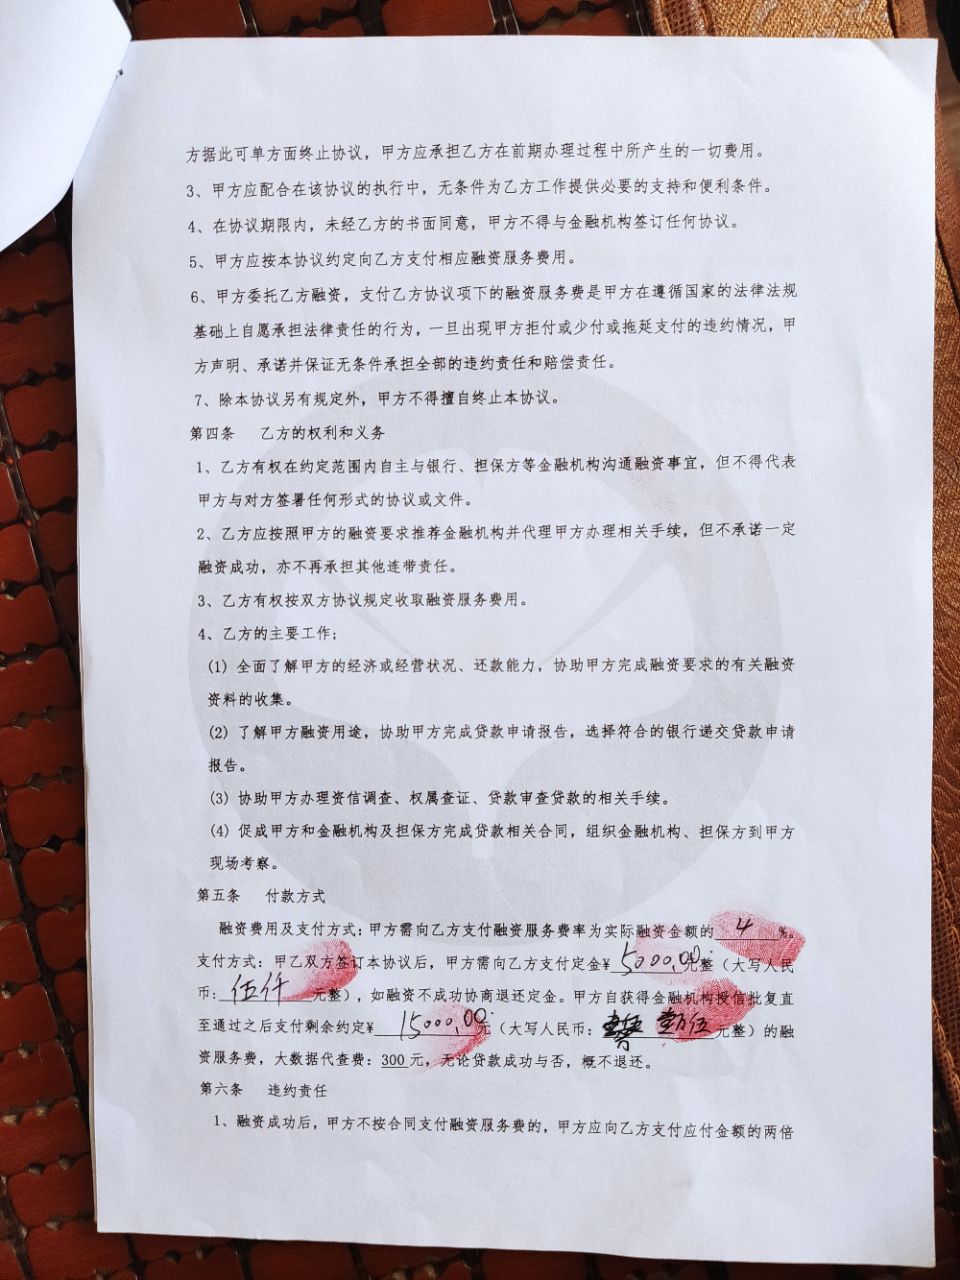 方据此可单方面终止协议，甲方应承担乙方在前期办理过程中所产生的一切费用。
3、甲方应配合在该协议的执行中，无条件为乙方工作提供必要的支持和便利条件。
4、在协议期限内，未经乙方的书面同意，甲方不得与金融机构签订任何协议。
5、甲方应按本协议约定向乙方支付相应融资服务费用。
6、甲方委托乙方融资，支付乙方协议项下的融资服务费是甲方在遵循国家的法律法规
基础上自愿承担法律责任的行为，一旦出现甲方拒付或少付或拖延支付的违约情况，甲
方声明、承诺并保证无条件承担全部的违约责任和赔偿责任。
7、除本协议另有规定外，甲方不得擅自终止本协议。
第四条 乙方的权利和义务
1、乙方有权在约定范围内自主与银行、担保方等金融机构沟通融资事宜，但不得代表
甲方与对方签署任何形式的协议或文件。
2、乙方应按照甲方的融资要求推荐金融机构并代理甲方办理相关手续，但不承诺一定
融资成功，亦不再承担其他连带责任。
3、乙方有权按双方协议规定收取融资服务费用。
4、乙方的主要工作;
(1) 全面了解甲方的经济或经营状况、还款能力，协助甲方完成融资要求的有关融资
资料的收集。
(2) 了解甲方融资用途，协助甲方完成贷款申请报告，选择符合的银行递交贷款申请
报告。
(3) 协助甲方办理资信调查、权属查证、贷款审查贷款的相关手续。
(4) 促成甲方和金融机构及担保方完成贷款相关合同，组织金融机构、担保方到甲方
现场考察。
第五条 付款方式
融资费用及支付方式：甲方需向乙方支付融资服务费率为实际融资金额的 4 %。
支付方式：甲乙双方签订本协议后，甲方需向乙方支付定金¥ 5000.00 元整（大写人民
币： 伍仟 元整），如融资不成功协商退还定金。甲方自获得金融机构授信批复直
至通过之后支付剩余约定¥ 15000.00 元（大写人民币： 壹万伍 元整）的融
资服务费，大数据代查费：300 元，无论贷款成功与否，概不退还。
第六条 违约责任
1、融资成功后，甲方不按合同支付融资服务费的，甲方应向乙方支付应付金额的两倍